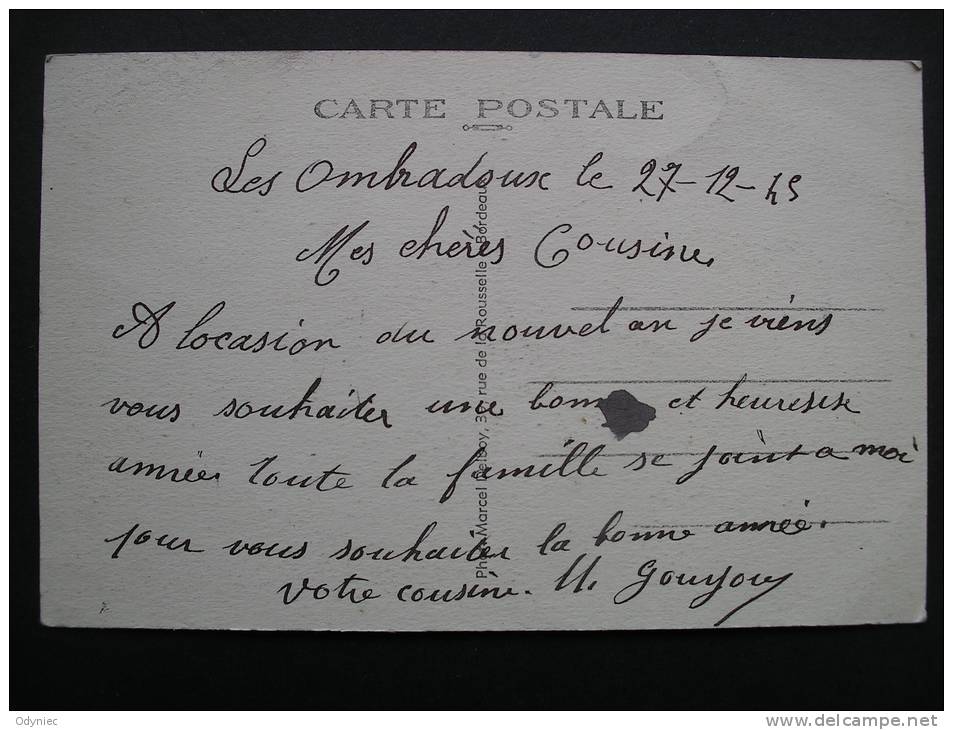 CARTE POSTALE
Les Ombradoux le 27-12-45
Mes chères Cousine,
A locasion du nouvel an je viens
vous souhaiter une bonne et heureuse
année toute la famille se joint a moi
pour vous souhaiter la bonne année.
votre cousine. M. Goujou
Phot. Marcel Delboy, rue de la Rousselle - Bordeaux
Odyniec
www.delcampe.net